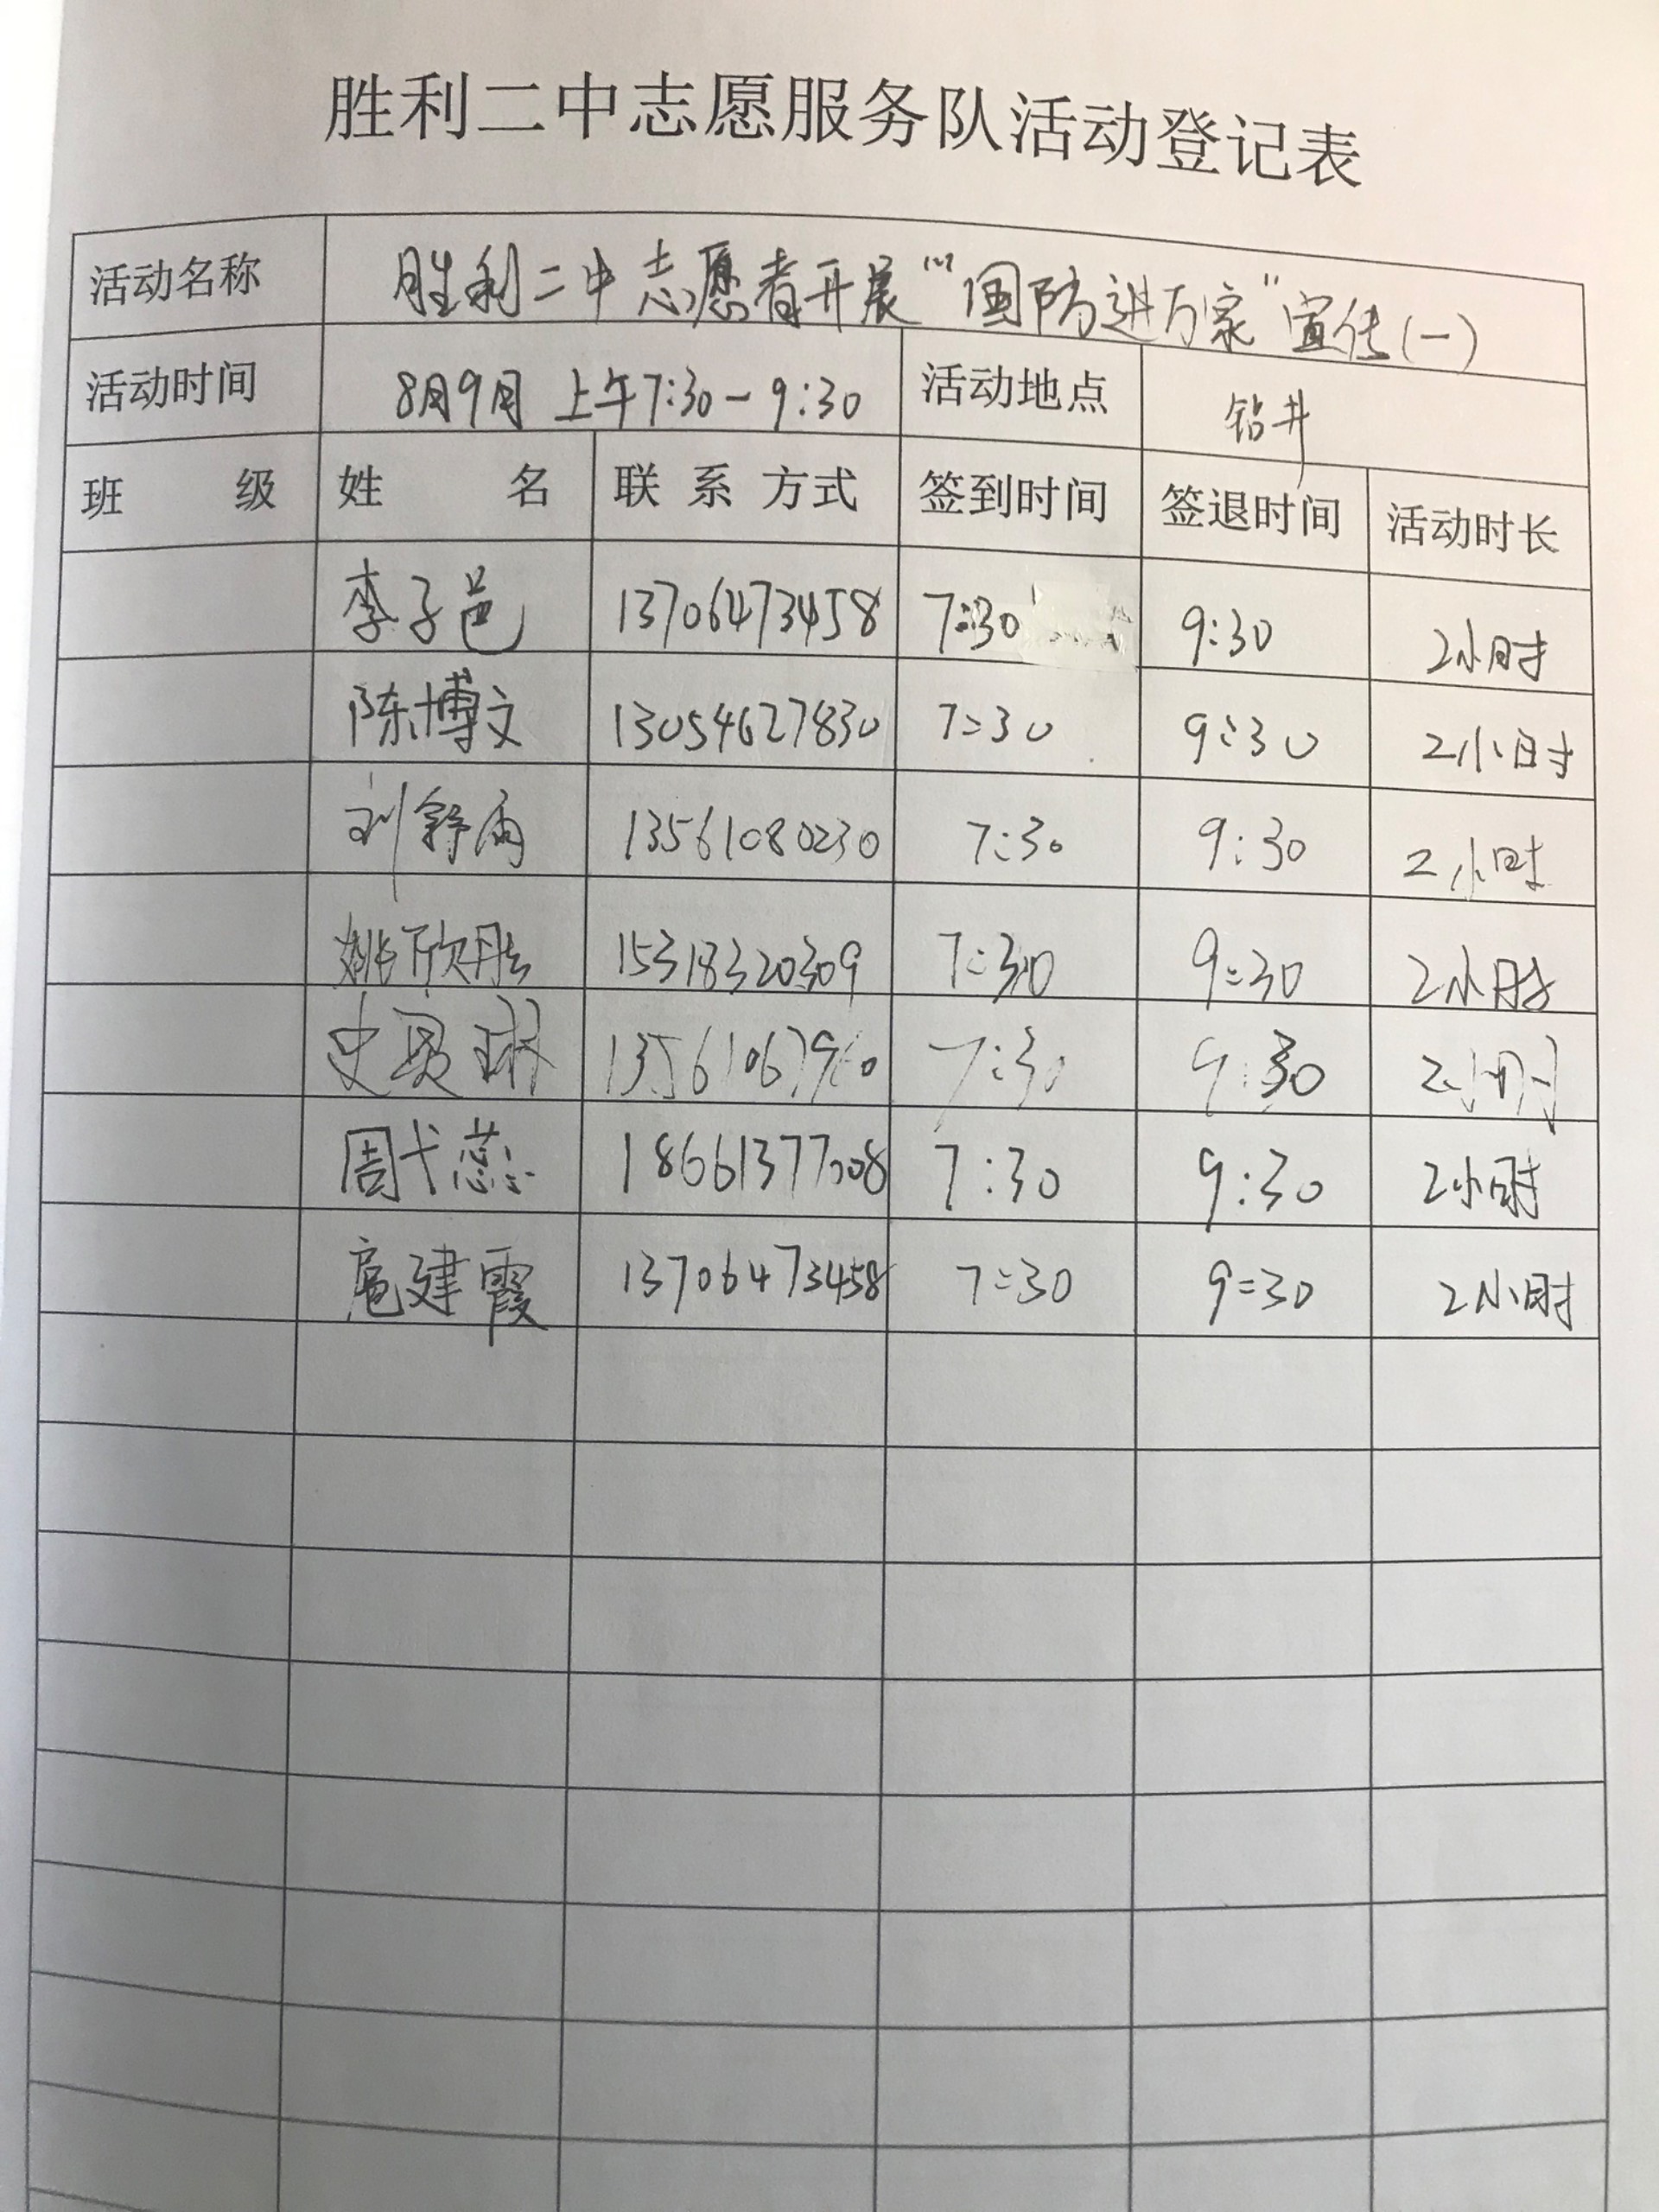 胜利二中志愿服务队活动登记表
活动名称 胜利二中志愿者开展“国防进万家”宣传(一)
活动时间 8月9月 上午7:30-9:30 活动地点 钻井
班 级 姓 名 联系方式 签到时间 签退时间 活动时长
李子邑 13706473458 7:30 9:30 2小时
陈博文 13054627830 7:30 9:30 2小时
刘舒雨 13561080230 7:30 9:30 2小时
姚欣彤 15318320309 7:30 9:30 2小时
史 7:30 9:30 2小时
周弋蕊 18661377008 7:30 9:30 2小时
扈建霞 13706473458 7:30 9:30 2小时